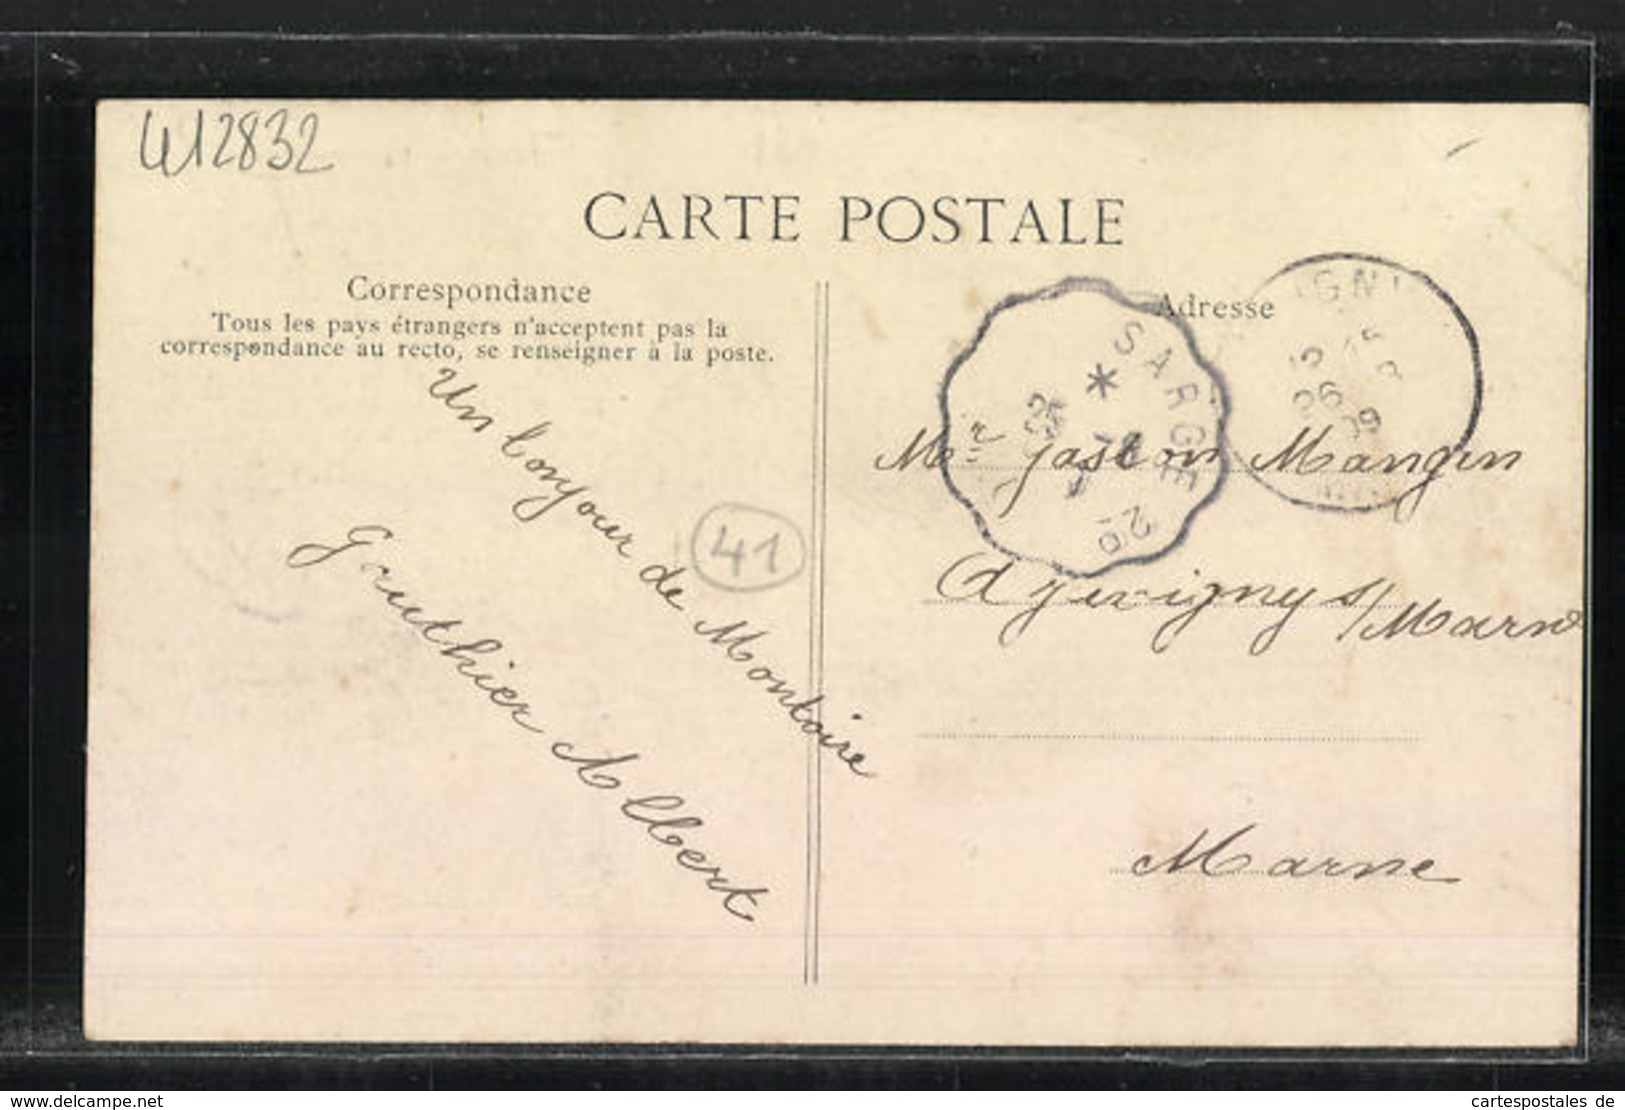 412832
CARTE POSTALE
Correspondance
Tous les pays étrangers n'acceptent pas la
correspondance au recto, se renseigner à la poste.
Un bonjour de Montoire
Gauthier Albert
41
Adresse
SARGE
25
Mr Gaston Mangin
A Juvigny s/Marne
Marne
www.delcampe.net
cartespostales de